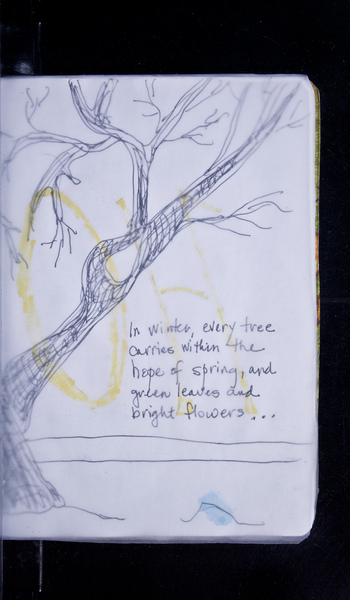 In winter, every tree
carries within the
hope of spring, and
green leaves and
bright flowers...